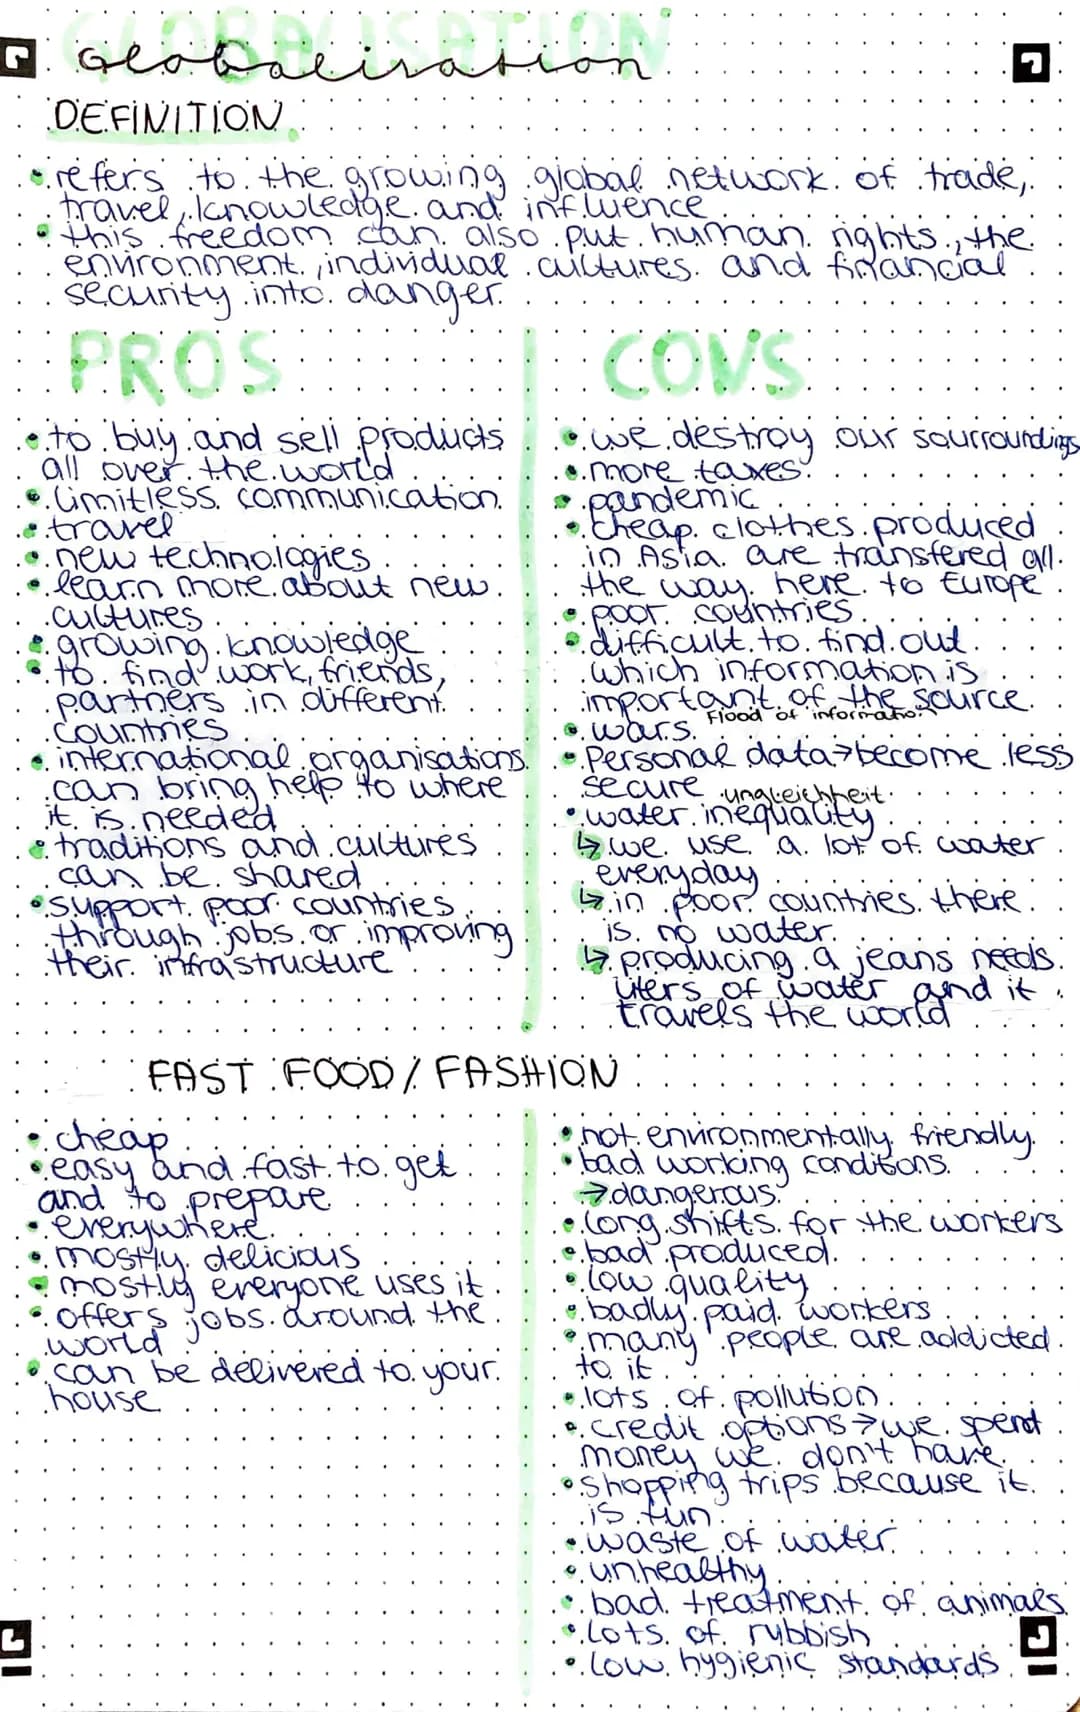 GLOBALISATION
Globalisation
DEFINITION
• refers to the growing global network of trade,
travel, knowledge and influence
• this freedom can also put human rights, the
environment, individual cultures and financial
security into danger
PROS
• to buy and sell products
all over the world
• limitless communication
• travel
• new technologies
• learn more about new
cultures
• growing knowledge
• to find work, friends,
partners in different
countries
• international organisations
can bring help to where
it is needed
• traditions and cultures
can be shared
• support poor countries
through jobs or improving
their infrastructure
CONS
• we destroy our sourroundings
• more taxes
• pandemic
• cheap clothes produced
in Asia are transfered all
the way here to Europe
• poor countries
• difficult to find out
which information is
important of the source
Flood of information
• wars
• Personal data → become less
secure
ungleichheit
• water inequality
↳ we use a lot of water
everyday
↳ in poor countries there
is no water
↳ producing a jeans needs
liters of water and it
travels the world
FAST FOOD / FASHION
• cheap
• easy and fast to get
and to prepare
• everywhere
• mostly delicious
• mostly everyone uses it
• offers jobs around the
world
• can be delivered to your
house
• not environmentally friendly
• bad working conditions
→ dangerous
• long shifts for the workers
• bad produced
• low quality
• badly paid workers
• many people are addicted
to it
• lots of pollution
• credit options → we spent
money we don't have
• shopping trips because it
is fun
• waste of water
• unhealthy
• bad treatment of animals
• lots of rubbish
• low hygienic standards